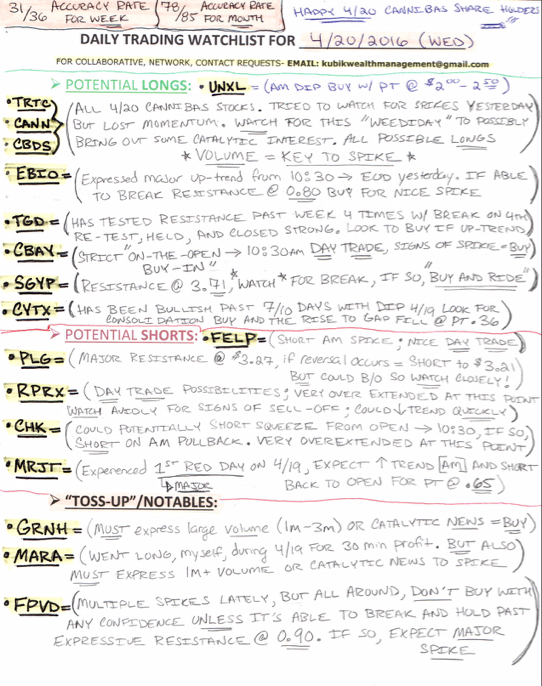 31/36 ACCURACY RATE FOR WEEK
78/85 ACCURACY RATE FOR MONTH
HAPPY 4/20 CANNIBAS SHARE HOLDERS
DAILY TRADING WATCHLIST FOR 4/20/2016 (WED)
FOR COLLABORATIVE, NETWORK, CONTACT REQUESTS- EMAIL: kubikwealthmanagement@gmail.com
➢ POTENTIAL LONGS: • UNXL = (AM DIP BUY W/ PT @ $2.00 - 2.50)
• TRTC
• CANN
• CBDS
(ALL 4/20 CANNIBAS STOCKS. TRIED TO WATCH FOR SPIKES YESTERDAY
BUT LOST MOMENTUM. WATCH FOR THIS "WEEDIDAY" TO POSSIBLY
BRING OUT SOME CATALYTIC INTEREST. ALL POSSIBLE LONGS
* VOLUME = KEY TO SPIKE *)
• EBIO = (Expressed major up-trend from 10:30 → EOD yesterday. IF ABLE
TO BREAK RESISTANCE @ 0.80 BUY FOR NICE SPIKE
• TGD = (HAS TESTED RESISTANCE PAST WEEK 4 TIMES W/ BREAK ON 4TH
RE-TEST, HELD, AND CLOSED STRONG. LOOK TO BUY IF UP-TREND)
• CBAY = (STRICT "ON-THE-OPEN → 10:30AM DAY TRADE, SIGNS OF SPIKE = BUY)
BUY-IN"
• SGYP = (RESISTANCE @ 3.71, *WATCH* FOR BREAK, IF SO, "BUY AND RIDE")
• CVTX = (HAS BEEN BULLISH PAST 7/10 DAYS WITH DIP 4/19 LOOK FOR
CONSOLIDATION BUY AND THE RISE TO GAP FILL @ PT .36)
➢ POTENTIAL SHORTS: • FELP = (SHORT AM SPIKE; NICE DAY TRADE)
• PLG = (MAJOR RESISTANCE @ $3.27, if reversal occurs = SHORT to $3.21)
BUT COULD B/O SO WATCH CLOSELY!
• RPRX = (DAY TRADE POSSIBILITIES; VERY OVER EXTENDED AT THIS POINT
WATCH AVIDLY FOR SIGNS OF SELL-OFF; COULD ↓TREND QUICKLY)
• CHK = (COULD POTENTIALLY SHORT SQUEEZE FROM OPEN → 10:30, IF SO,
SHORT ON AM PULLBACK. VERY OVEREXTENDED AT THIS POINT)
• MRJT = (Experienced 1ST RED DAY ON 4/19, EXPECT ↑ TREND [AM] AND SHORT
MAJOR
BACK TO OPEN FOR PT @ .65)
➢ "TOSS-UP"/NOTABLES:
• GRNH = (MUST express large volume (1m-3m) OR CATALYTIC NEWS = BUY)
• MARA = (WENT LONG, myself, during 4/19 FOR 30 min Profit. BUT ALSO
MUST EXPRESS 1M+ VOLUME OR CATALYTIC NEWS TO SPIKE)
• FPVD = (MULTIPLE SPIKES LATELY, BUT ALL AROUND, DON'T BUY WITH
ANY CONFIDENCE UNLESS IT'S ABLE TO BREAK AND HOLD PAST
EXPRESSIVE RESISTANCE @ 0.90. IF SO, EXPECT MAJOR
SPIKE)